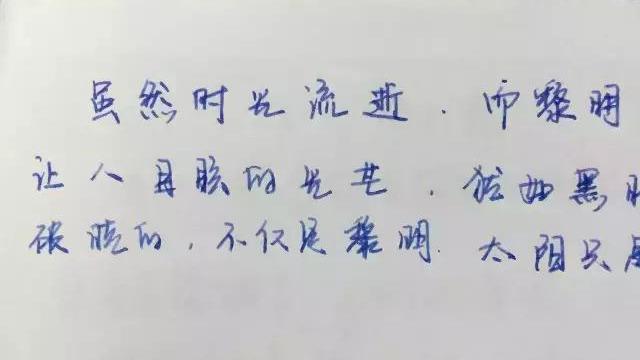 虽然时光流逝.而黎明
让人目眩的光芒.犹如黑
破晓的,不仅是黎明.太阳只